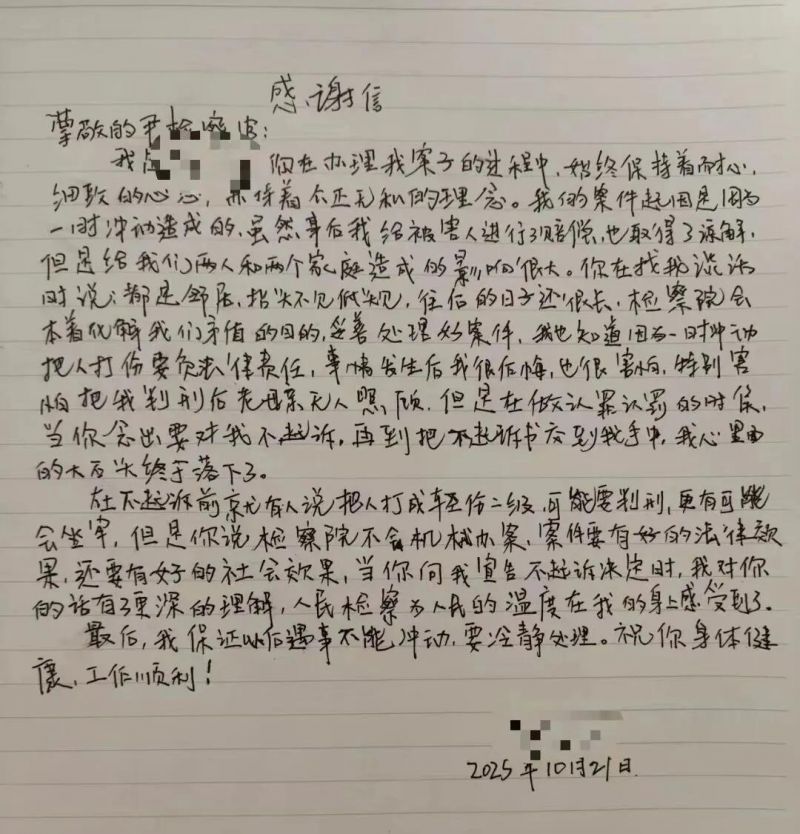 感谢信
尊敬的尹检察官:
我是 你在办理我案子的过程中,始终保持着耐心,
细致的心态,秉持着公正无私的理念。我的案件起因是因为
一时冲动造成的,虽然事后我给被害人进行了赔偿,也取得了谅解,
但是给我们两人和两个家庭造成的影响很大。你在找我谈话
时说:都是邻居,抬头不见低头见,往后的日子还很长,检察院会
本着化解我们矛盾的目的,妥善处理好案件,我也知道因为一时冲动
把人打伤要负法律责任,事情发生后我很后悔,也很害怕,特别害
怕把我判刑后老母亲无人照顾,但是在做认罪认罚的时候,
当你念出要对我不起诉,再到把不起诉书交到我手中,我心里面
的大石头终于落下了。
在不起诉前就有人说把人打成轻伤二级,可能要判刑,更有可能
会坐牢,但是你说检察院不会机械办案,案件要有好的法律效
果,还要有好的社会效果,当你向我宣告不起诉决定时,我对你
的话有了更深的理解,人民检察为人民的温度在我的身上感受到了。
最后,我保证以后遇事不能冲动,要冷静处理。祝你身体健
康,工作顺利!
2025年10月21日